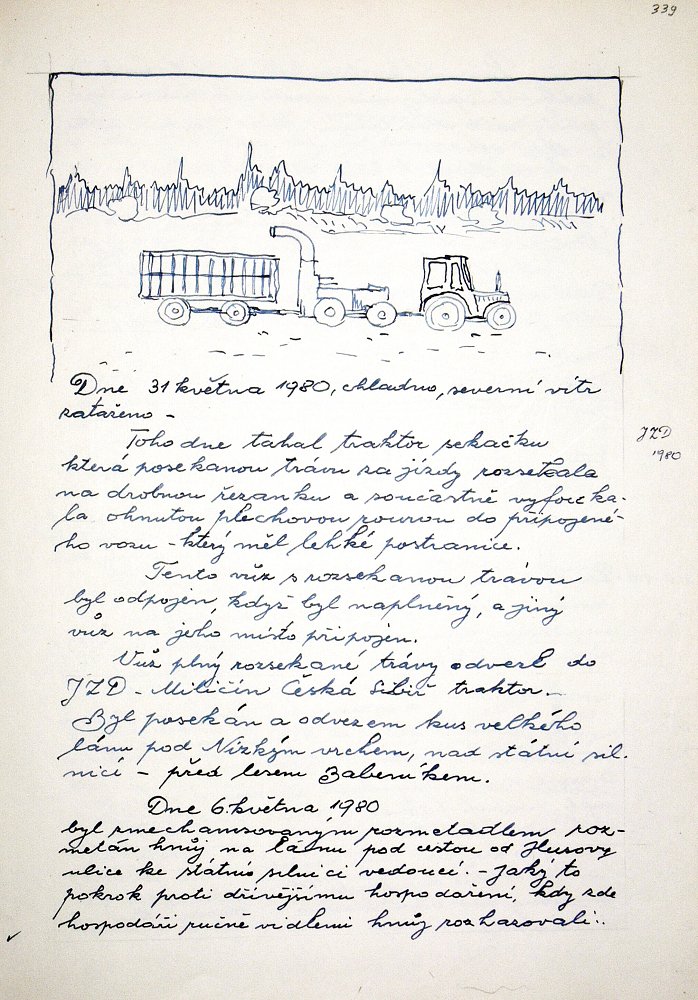 339
Dne 31 května 1980, chladno, severní vítr
zataženo -
Toho dne tahal traktor sekačku
která posekanou trávu za jízdy rozsekala
na drobnou řezanku a součastně vyfouka-
la ohnutou plechovou rourou do připojené-
ho vozu - který měl lehké postranice.
JZD
1980
Tento vůz s rozsekanou trávou
byl odpojen, když byl naplněný, a jiný
vůz na jeho místo připojen.
Vůz plný rozsekané trávy odvezl do
JZD - Miličín Česká Sibiř traktor. -
Byl posekán a odvezem kus velkého
lánu pod Nízkým vrchem, nad státní sil.
nicí - před lesem Baberníkem.
Dne 6. května 1980
byl zmechanisovaným rozmetadlem roz-
metán hnůj na lánu pod cestou od Husovy
ulice ke státní silnici vedoucí. - Jaký to
pokrok proti dřívějšímu hospodaření, kdy zde
hospodáři ručně vidlemi hnůj rozhazovali..